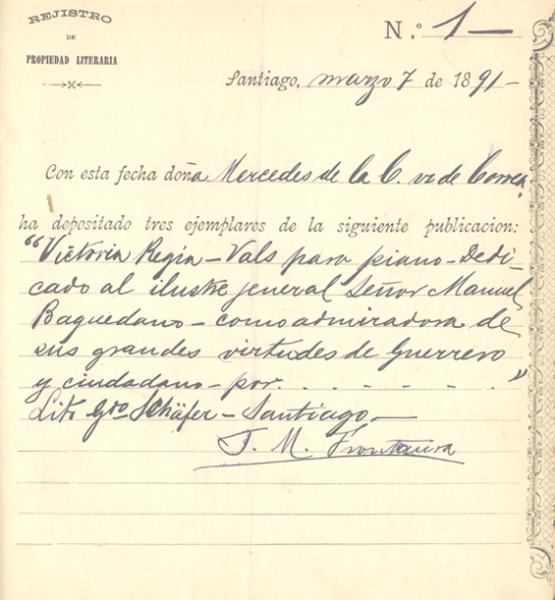 REJISTRO
DE
PROPIEDAD LITERARIA
N.º 1—
Santiago, marzo 7 de 1891-
Con esta fecha doña Mercedes de la C. v. de Correa
ha depositado tres ejemplares de la siguiente publicacion:
"Victoria Regia - Vals para piano - Dedi-
cado al ilustre jeneral Señor Manuel
Baquedano - como admiradora de
sus grandes virtudes de Guerrero
y ciudadano - por. . . . . . . "
Lito Gdo Schäfer - Santiago—
J. M. Frontaura